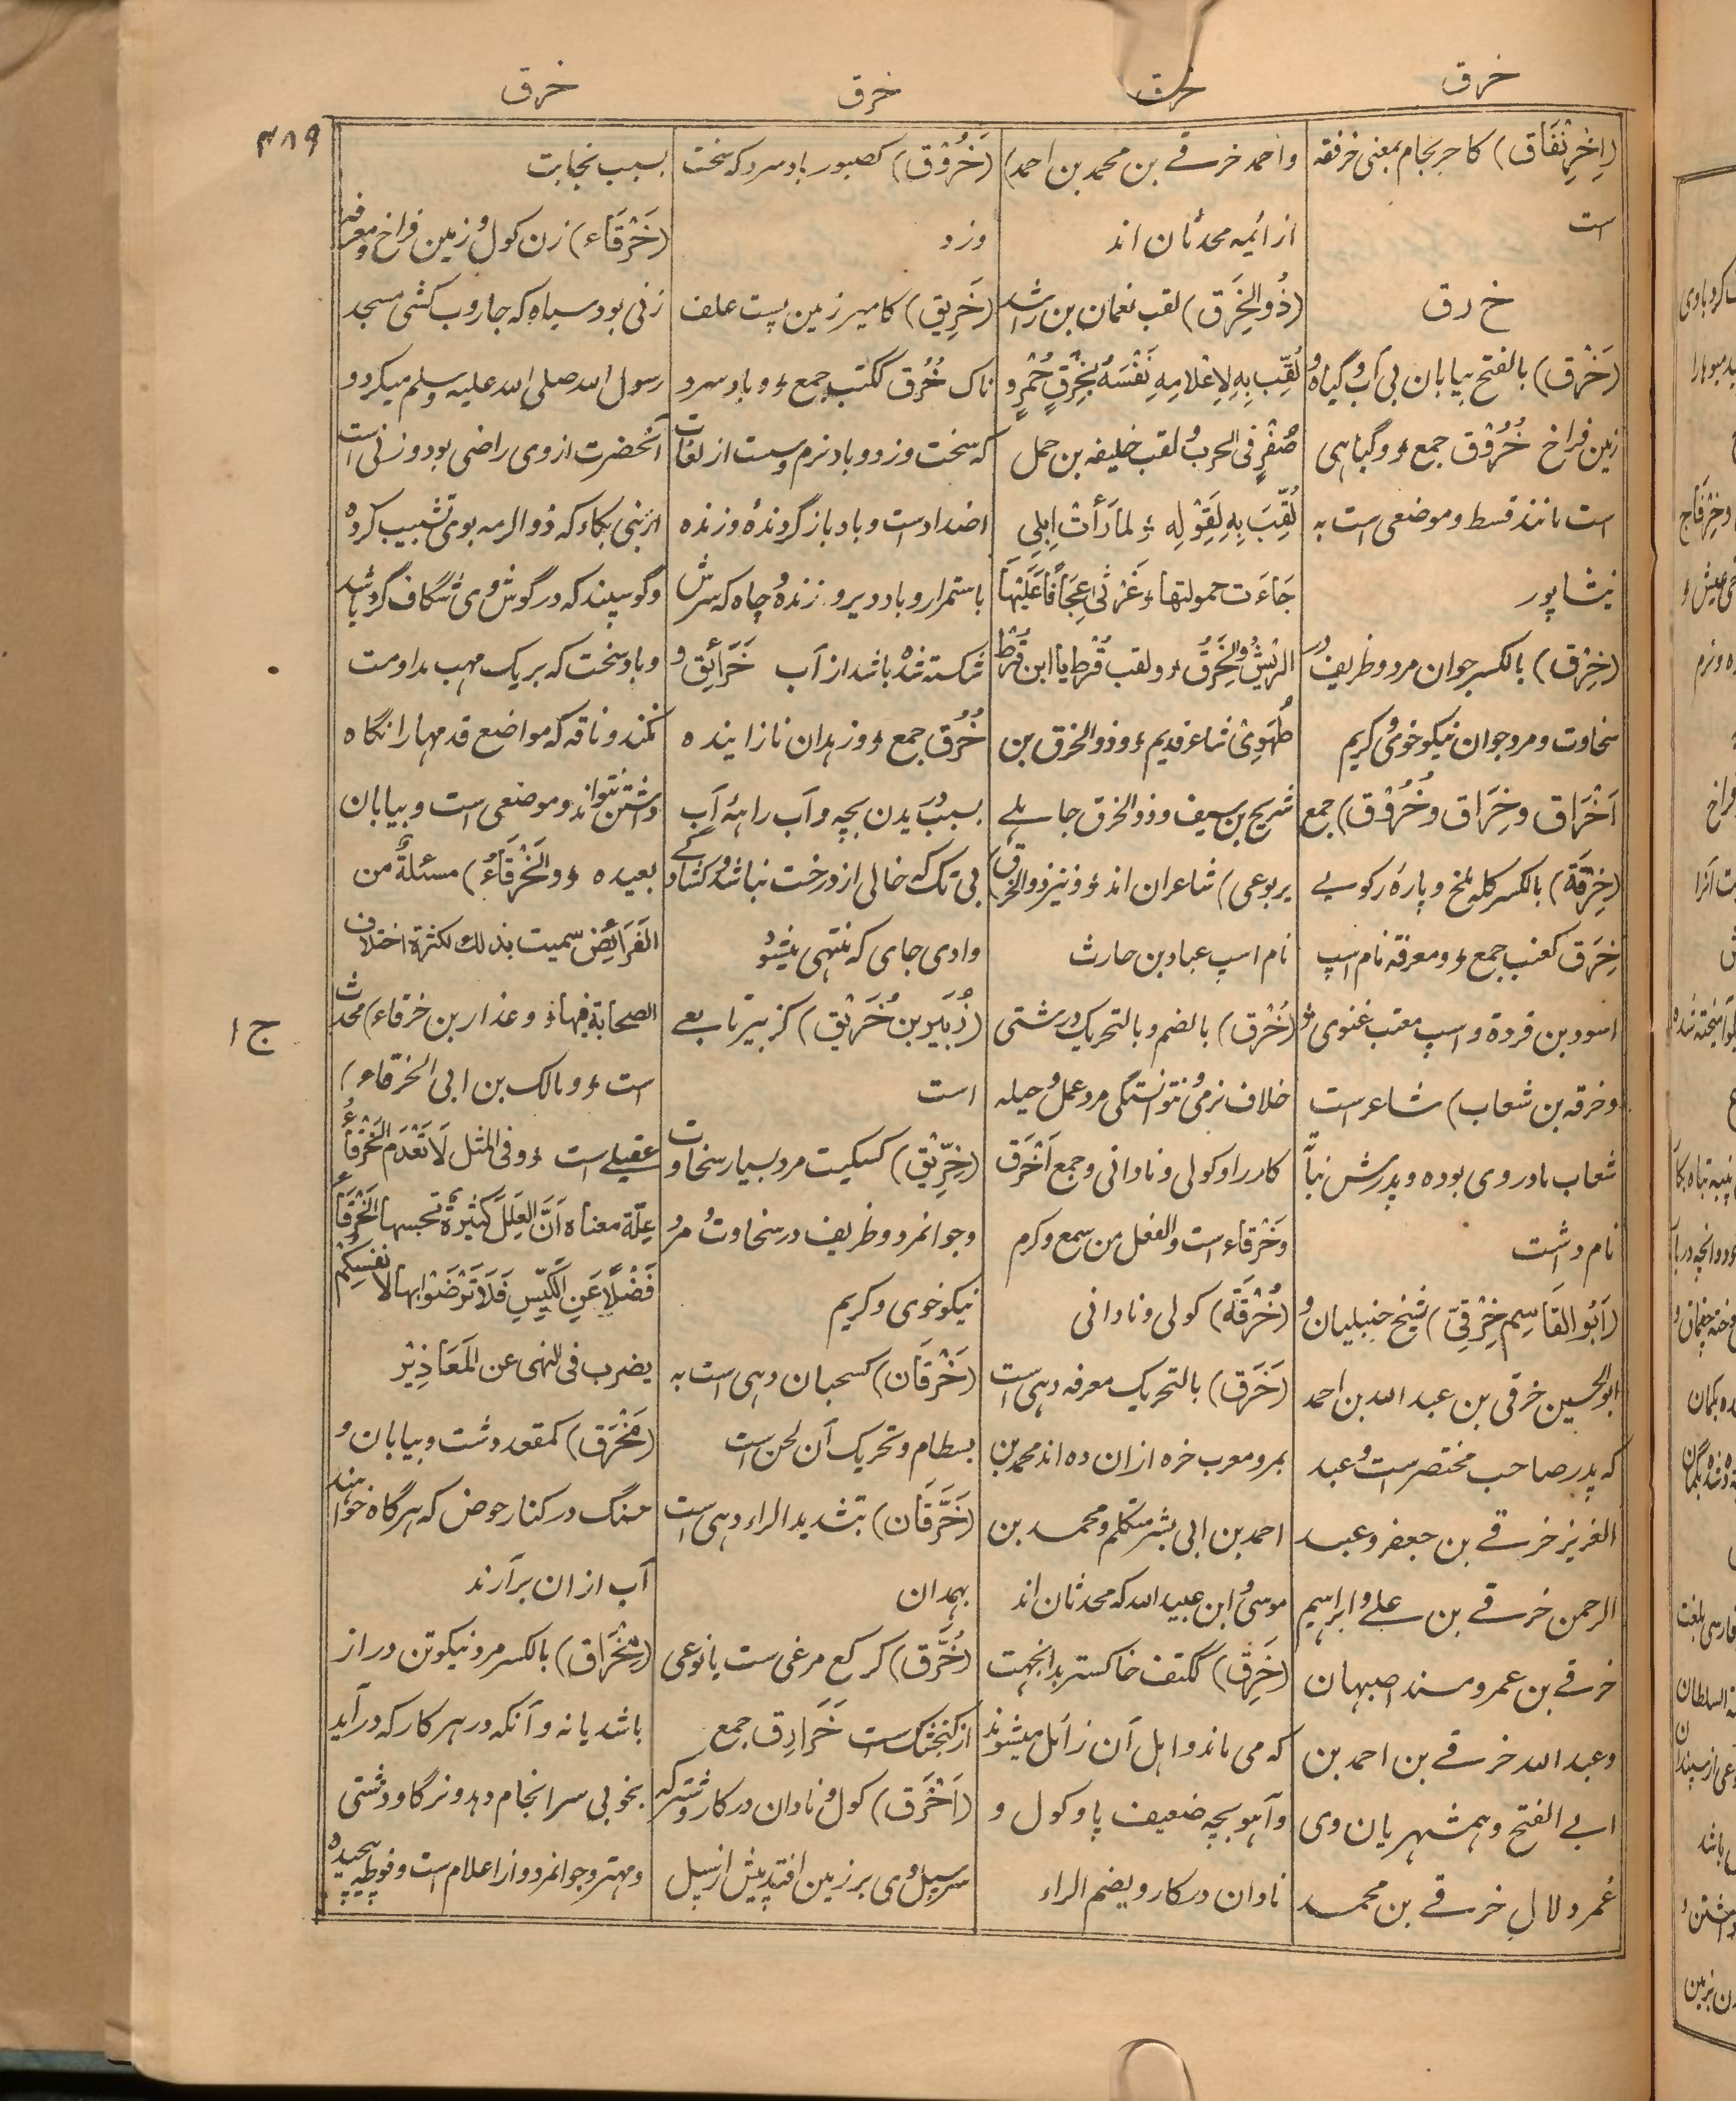 خرق
خرق
خرق
خرق
۳۸۹
(اِخْرِنْفَاق) کاحرنجام بمعنی خرفقه
است
خ ر ق
(خَرْق) بالفتح بیابان بی آب و گیاه و
زمین فراخ خُرُوْق جمع ؤ و گیاهی
است مانند قسط و موضعی است به
نیشاپور
(خِرْق) بالکسر جوان مرد و ظریف در
سخاوت و مرد جوان نیکو خوی کریم
اَخْرَاق و خِرَاق و خُرُوْق) جمع
(خِرْقَة) بالکسر کله ملخ و پارهٔ رکوی
خِرَق کعنب جمع ؤ و معرفه نام اسپ
اسود بن قردة و اسپ معتب غنوی ؤ
و خرقه بن شعاب) شاعر است
شعاب مادر وی بوده و پدرش نباتَّ
نام داشت
(اَبُو القَاسِم خِرْقِیّ) شیخ حنبلیان و
ابو الحسین خرقی بن عبد الله بن احمد
که پدر صاحب مختصر است و عبد
العزیز خرقے بن جعفر و عبد
الرحمن خرقے بن علے و ابراہیم
خرقے بن عمرو مسند اصبهان
و عبد الله خرقے بن احمد بن
ابے الفتح و ہمشہریان وی
عُمر دلالِ خرقے بن محمد
و احمد خرقے بن محمد بن احمد)
از ائمه محدثان اند
(ذُو الخِرَق) لقب نعمان بن راشد
لُقِّبَ بِهِ لِاِعْلامِهِ نَفْسَهُ بِخِرَقٍ حُمْرٍ و
صُفْرٍ فی الحرب و لقب خلیفه بن حمل
لُقِّبَ بِهِ لِقَوْلِهِ ؛ لما رَأَتْ اِبِلِی
جَاءَت حمولتها ؤ غَرْثٰی عِجَافًا عَلَیْهَا
الرِّیْشُ وَالْخِرَقُ ؤ و لقب قُرط یا ابن قُرْط
طُهَوِیّ شاعر قدیم ؤ و ذو الخرق بن
شریح بن سیف و ذو الخرق جاہلے
یربوعی) شاعران اند ؤ و نیز ذو الخرق
نام اسپ عباد بن حارث
(خُرْق) بالضم و بالتحریک درشتی
خلاف نرمی و نتوانستگی مرد عمل و حیله
کار را و کولی و نادانی و جمع اَخْرَق
و خَرْقاء است و الفعل من سمع و کرم
(خُرْقَة) کولی و نادانی
(خَرَق) بالتحریک معرفه دہی است
بمرو معرب خره ازان ده اند محمد بن
احمد بن ابی بشر متکلم و محمد بن
موسیٰ و ابن عبید الله که محدثان اند
(خَرِق) ککتف خاکستر بدانجهت
که می ماند و اہل آن زائل میشوند
و آہو بچه ضعیف پا و کول و
نادان در کار و بضم الراء
(خَرُوْق) کصبور باد سرد که سخت
وزد
(خَرِیق) کامیر زمین پست علف
ناک خُرُق ککتب جمع ؤ و باد سرد
که سخت وزد و باد نرم و سست از لغات
اضداد است و باد بازگردنده وزنده
باستمرار و باد دیر وزنده و چاه که سرش
شکسته شده باشد از آب خَرَائِق و
خُرُق جمع ؤ و زہدان نازاینده
بسبب دریدن بچه و آب راہۂ آب
بی تک که خالی از درخت نباشد و کشادگے
وادی جای که منتهی میشود
(زُبَیر بن خُرَیْق) کزبیر تابعے
است
(خِرِّیْق) کسکیت مرد بسیار سخاوت
و جوانمرد و ظریف در سخاوت و مرد
نیکو خوی و کریم
(خَرْقَان) کسحبان دہی است به
بسطام و تحریک آن لحن است
(خَرَّقَان) بتشدید الراء دہی است
بهمدان
(خُرَّق) کرکع مرغی ست یا نوعی
از گنجشک ست خَرَارِق جمع
(اَخْرَق) کول و نادان در کار و شتر که
سر سپل وی بر زمین افتد پیش از سپل
بسبب نجابت
(خَرْقَاء) زن کول و زمین فراخ و معرفه
زنی بود سیاہ که جاروب کشی مسجد
رسول الله صلی الله علیه وسلم میکرد و
آنحضرت از وی راضی بود و زنی است
از بنی بکاء که ذو الرمه بوی تشبیب کرده
و گوسپند که در گوش وی شگاف گرد باشد
و باد سخت که بر یک مهب مداومت
نکند و ناقه که مواضع قدمها را نگاه
داشتن نتواند و موضعی است و بیابان
بعیده ؤ و الخَرْقَاءُ) مسئلةٌ من
الفَرَائِضِ سمیت بذلك لکثرة اختلاف
الصحابة فیها ؤ و عذار بن خرقاء) محدث
است ؤ و مالک بن ابی الخرقاء)
عقیلے است ؤ و فی المثل لَا تَعْدَمُ الخَرْقَاءُ
عِلَّة معناه اَنَّ العِلَلَ کَثِیْرَةٌ تحسنها الخَرْقَاءُ
فَضْلًا عَنِ الکَیِّسِ فَلَا تَرْضَوْا بها لاَنفسکم
یضرب فی النهی عن المَعَاذِیْر
(مَخْرَق) کمقعد دشت و بیابان و
سنگ در کنار حوض که ہرگاہ خواہند
آب ازان برآرند
(مِخْرَاق) بالکسر مرد نیکو تن دراز
باشد یا نه و آنکه در ہر کار که درآید
بخوبی سرانجام دہد و نر گاو دشتی
و مهتر و جوانمرد و از اعلام است و فوطه پیچیده
ج ۱